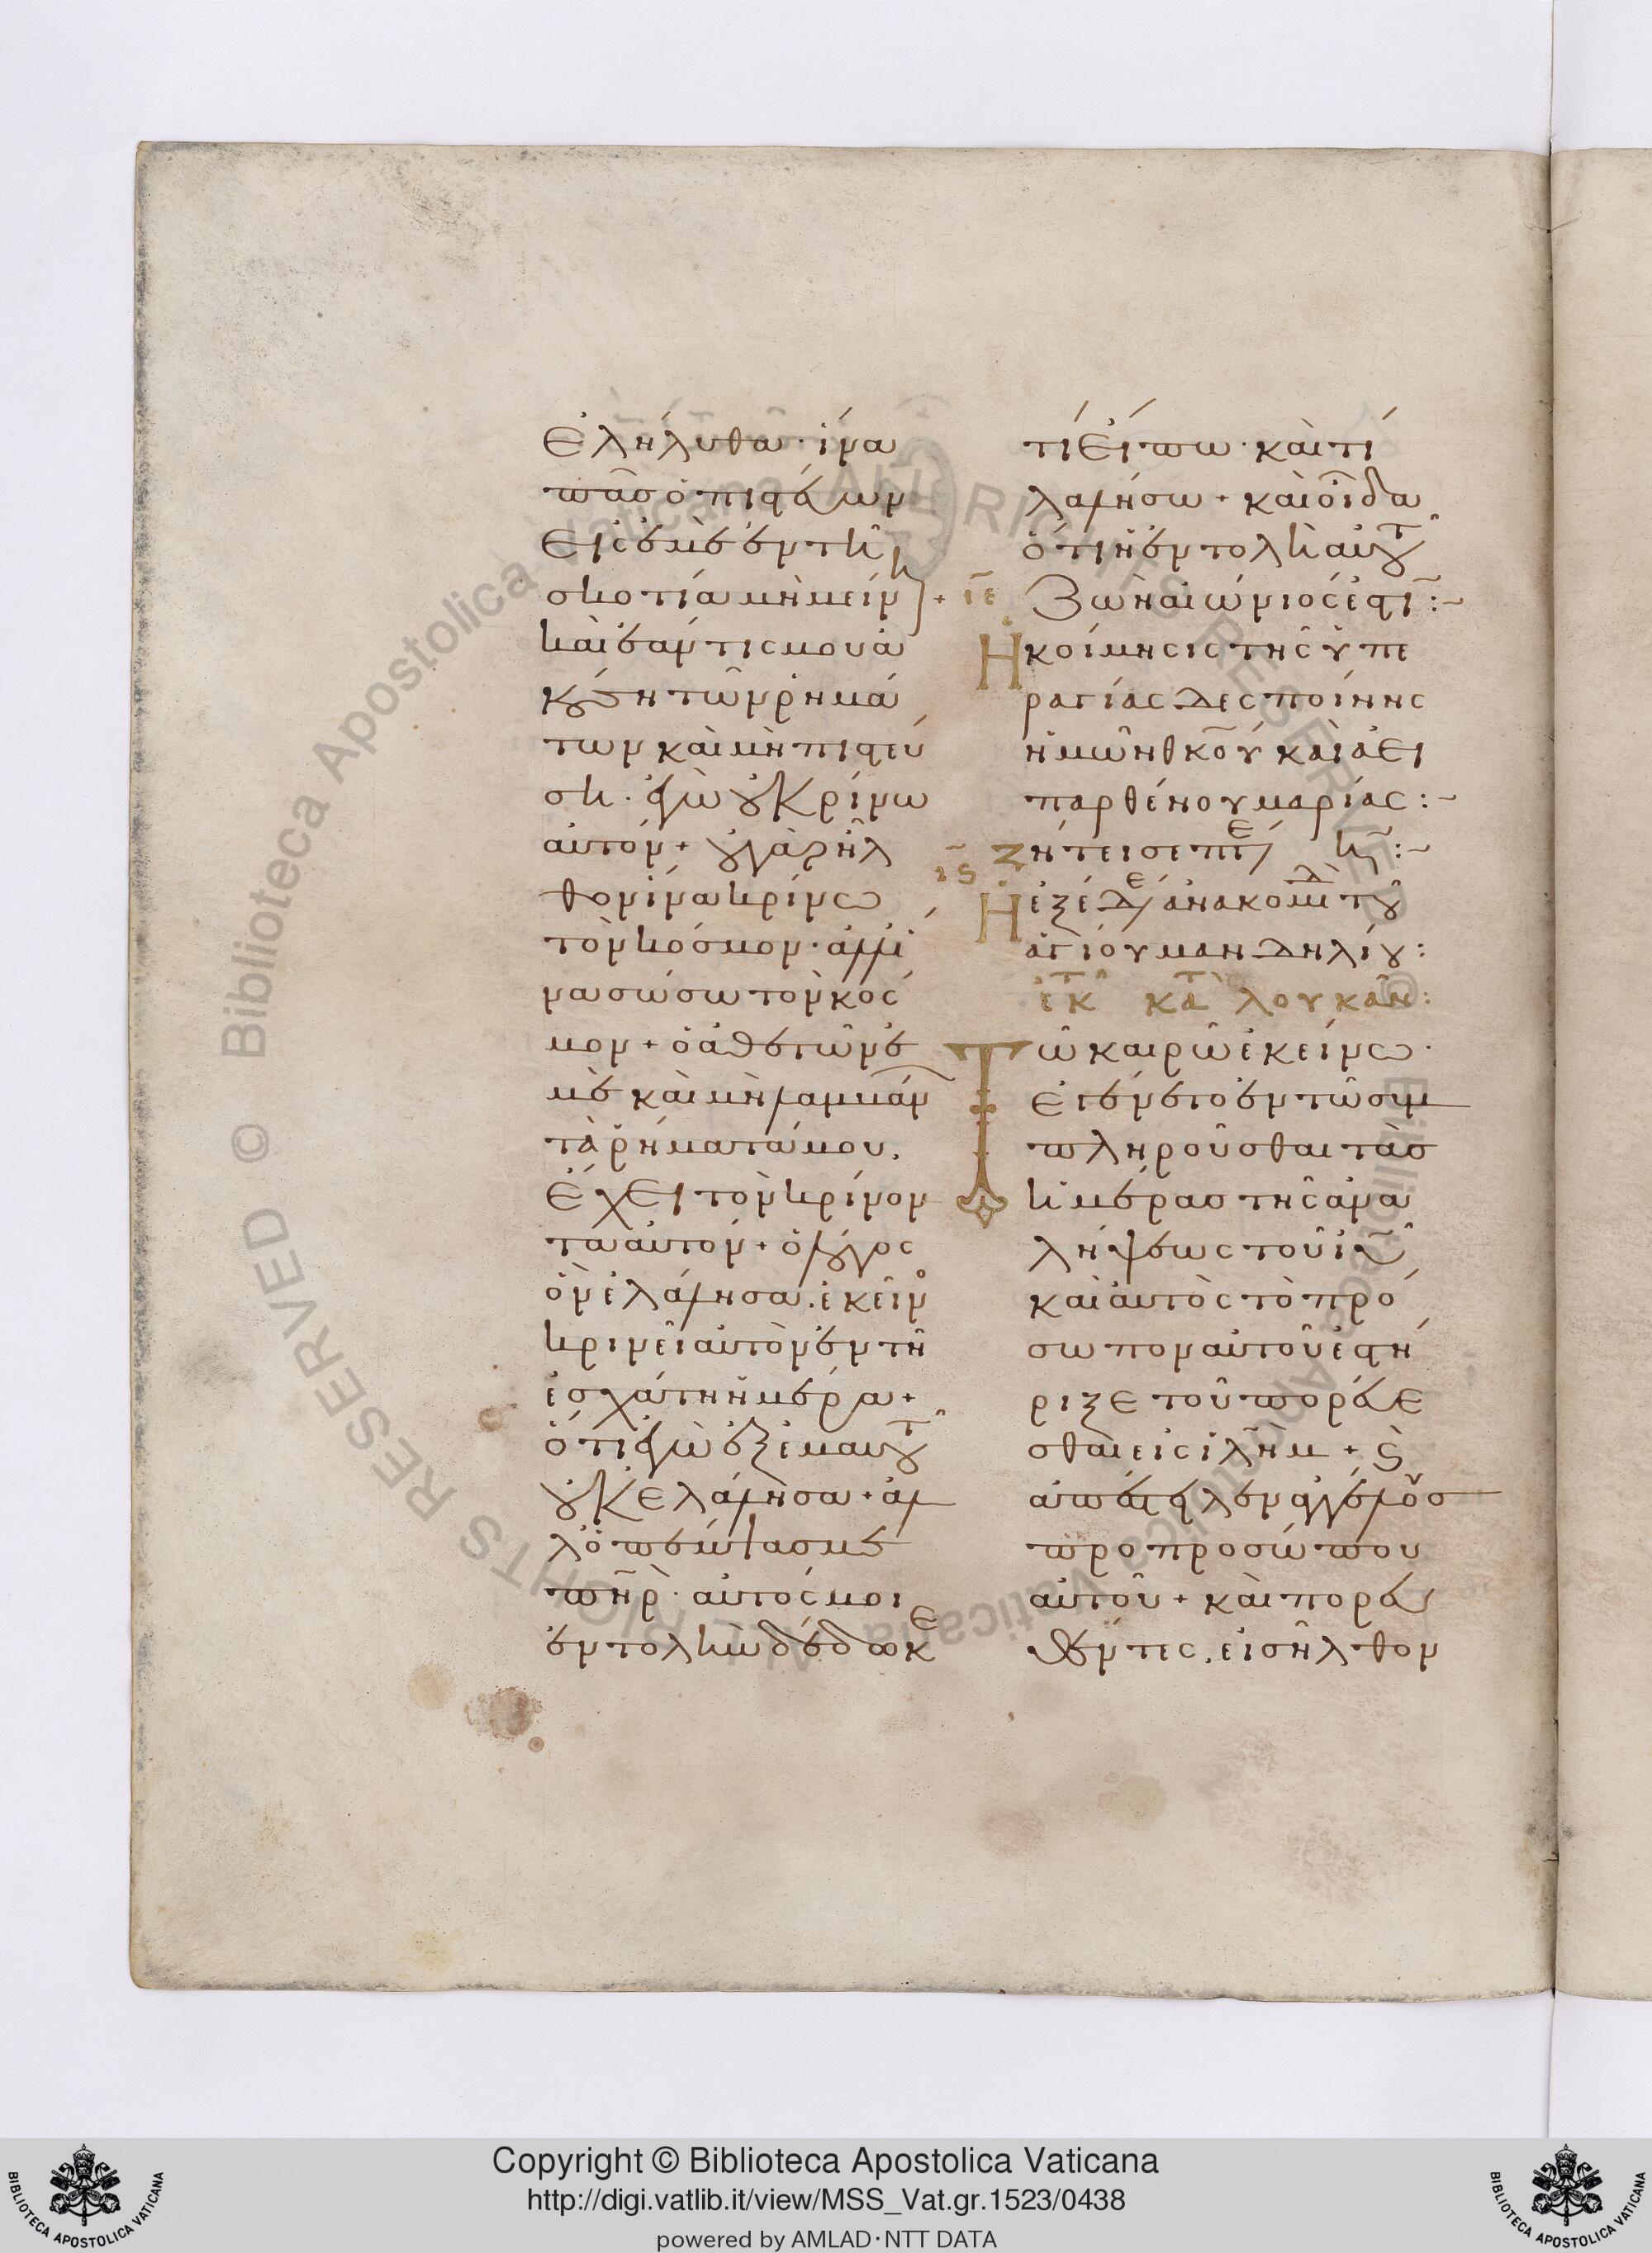 ἐλήλυθα· ἵνα
πᾶσ ὁ πιστεύων
εἰς ἐμὲ ἐν τῆ
σκοτία μὴ μείνη +
καὶ ἐάν τις μου ἀ
κούση τῶν ῥημά
των καὶ μὴ πιστεύ
ση· ἐγὼ οὐ κρίνω
αὐτόν + οὐ γὰρ ἦλ
θον ἵνα κρίνω
τὸν κόσμον· ἀλλ' ἵ
να σώσω τὸν κόσ
μον + ὁ ἀθετῶν ἐ
μὲ καὶ μὴ λαμβάν
τὰ ῥήματά μου,
ἔχει τὸν κρίνον
τα αὐτόν + ὁ λόγος
ὃν ἐλάλησα, ἐκεῖν
κρινεῖ αὐτὸν ἐν τῆ
ἐσχάτη ἡμέρα +
ὅτι ἐγὼ ἐξ ἐμαυτοῦ
οὐκ ἐλάλησα + ἀλ
λ' ὁ πέμψασ με
πηρ· αὐτός μοι
ἐντολὴν δέδωκε
τί εἴπω· καὶ τί
λαλήσω + καὶ οἶδα
ὅτι ἡ ἐντολὴ αὐτοῦ
ιε ζωὴ αἰώνιός ἐστι:~
Ἡ κοίμησις τῆς ὑπε
ραγίας δεσποίνης
ἡμῶν θκου καὶ ἀει
παρθένου μαρίας:~
ζήτει σεπτε η:~
ις
Ἡ ἐξ ἐδε ἀνακομιδ τοῦ
ἁγίου μανδηλίου:
ἐκ τ κατ λουκᾶν:
Τῶ καιρῶ ἐκείνω·
ἐγένετο ἐν τῶ συμ
πληροῦσθαι τὰσ
ἡμέρασ τῆς ἀνα
λήψεως τοῦ ιυ
καὶ αὐτὸς τὸ πρό
σωπον αὐτοῦ ἐστή
ριξε τοῦ πορεύε
σθαι εἰς ιλημ + ϛ
ἀπέστειλεν ἀγγέλουσ
πρὸ προσώπου
αὐτοῦ + καὶ πορευ
θέντες, εἰσῆλθον
Copyright © Biblioteca Apostolica Vaticana
http://digi.vatlib.it/view/MSS_Vat.gr.1523/0438
powered by AMLAD·NTT DATA
BIBLIOTECA APOSTOLICA VATICANA
BIBLIOTECA APOSTOLICA VATICANA
Biblioteca Apostolica Vaticana ALL RIGHTS RESERVED ©
Biblioteca Apostolica Vaticana ALL RIGHTS RESERVED ©